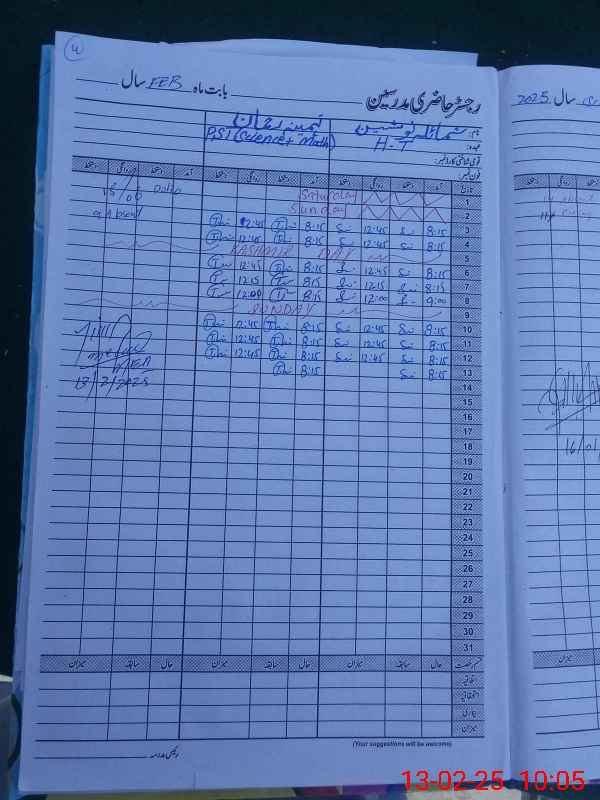 4
رجسٹر حاضری مدرسین بابت ماہ FEB سال
نام: شمائلہ نوشین ثمینہ رحمان
عہدہ: H-T PST (Science + Math)
قومی شناختی کارڈ نمبر:
فون نمبر:
تاریخ آمد دستخط روانگی دستخط آمد دستخط روانگی دستخط آمد دستخط روانگی دستخط
1 Saturday
2 Sunday
3 8:15 12:45 8:15 12:45
4 8:15 12:45 8:15 12:45
5 KASHMIR DAY
6 8:15 12:45 8:15 12:45
7 8:15 12:15 8:15 12:15
8 9:00 12:00 8:15 12:00
9 SUNDAY
10 8:15 12:45 8:15 12:45
11 8:15 12:45 8:15 12:45
12 8:15 12:45 8:15 12:45
13 8:15 8:15
14
15
16
17
18
19
20
21
22
23
24
25
26
27
28
29
30
31
13/2/2025
قسم رخصت حال سابقہ میزان حال سابقہ میزان حال سابقہ میزان
اتفاقیہ
استحقاقیہ
بیماری
میزان
(Your suggestions will be welcome)
رئیس مدرسہ
سال 2025
میزان
13-02-25 10:05